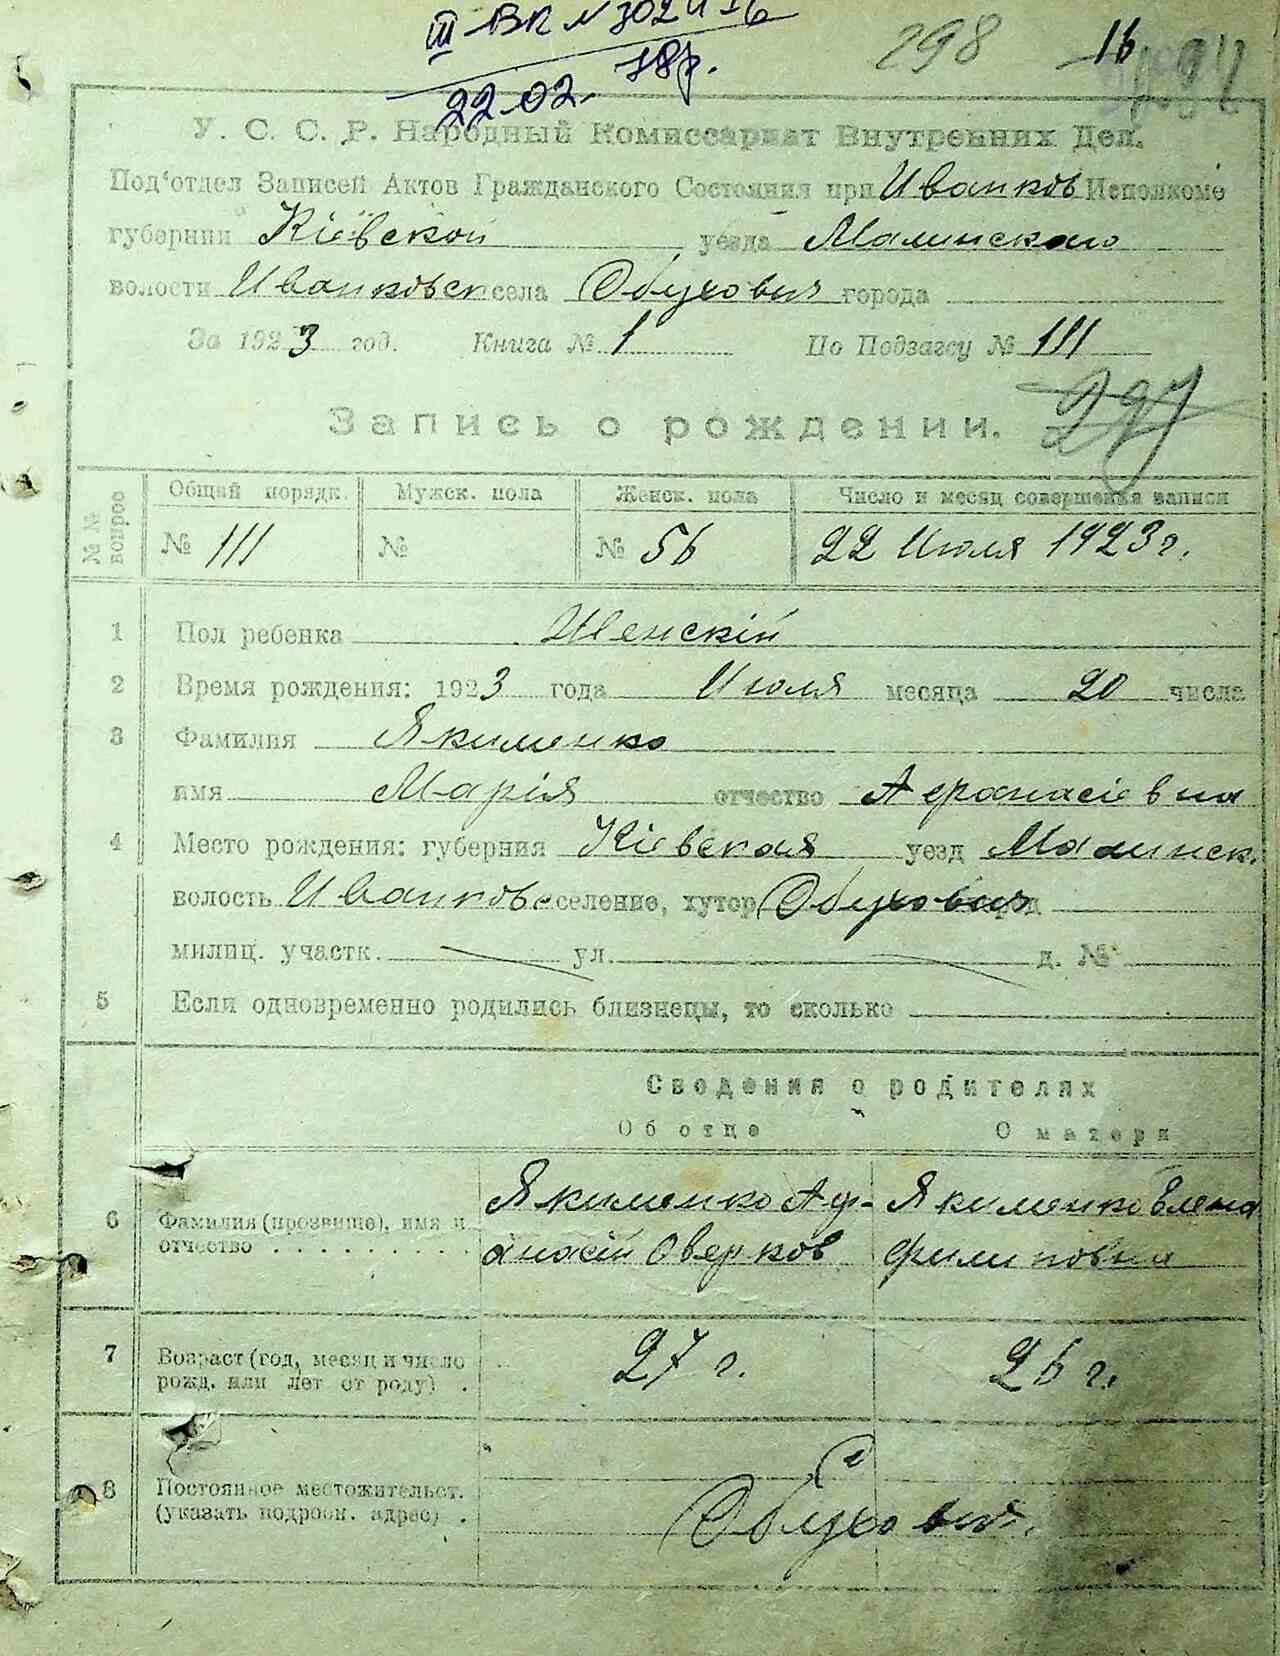 III-ВК № 302416
22.02. 78р.
298 16
У. С. С. Р. Народный Комиссариат Внутренних Дел.
Под'отдел Записей Актов Гражданского Состояния при Иванков Исполкоме
губернии Кіевской уезда Малинскаго
волости Иванковск села Обуховичъ города
За 1923 год. Книга № 1 По Подзагсу № 111
Запись о рождении. 297
№ № вопрос Общий порядк. Мужск. пола Женск. пола Число и месяц совершения записи
№ 111 № № 56 22 Июля 1923 г.
1 Пол ребенка Женскій
2 Время рождения: 1923 года Июля месяца 20 числа
3 Фамилия Якименко
имя Марія отчество Афанасіевна
4 Место рождения: губерния Кіевская уезд Малинск.
волость Иванковс селение, хутор Обуховичъ
милиц. участк. ул. д. №
5 Если одновременно родились близнецы, то сколько
Сведения о родителях
Об отце О матери
6 Фамилия (прозвище), имя и отчество Якименко Аф- Якименко Елена
анасій Оверков Филиповна
7 Возраст (год, месяц и число рожд. или лет от роду) . 27 г. 26 г.
8 Постоянное местожительст. (указать подробн. адрес) .
Обуховичъ.